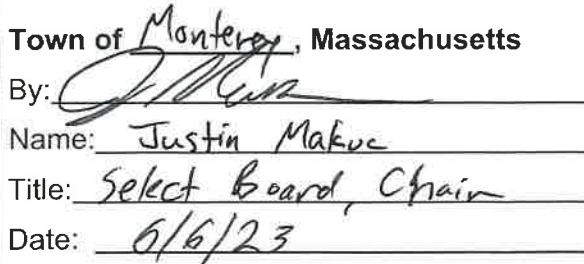 Town of Monterey, Massachusetts
By:
Name: Justin Makuc
Title: Select Board, Chair
Date: 6/6/23